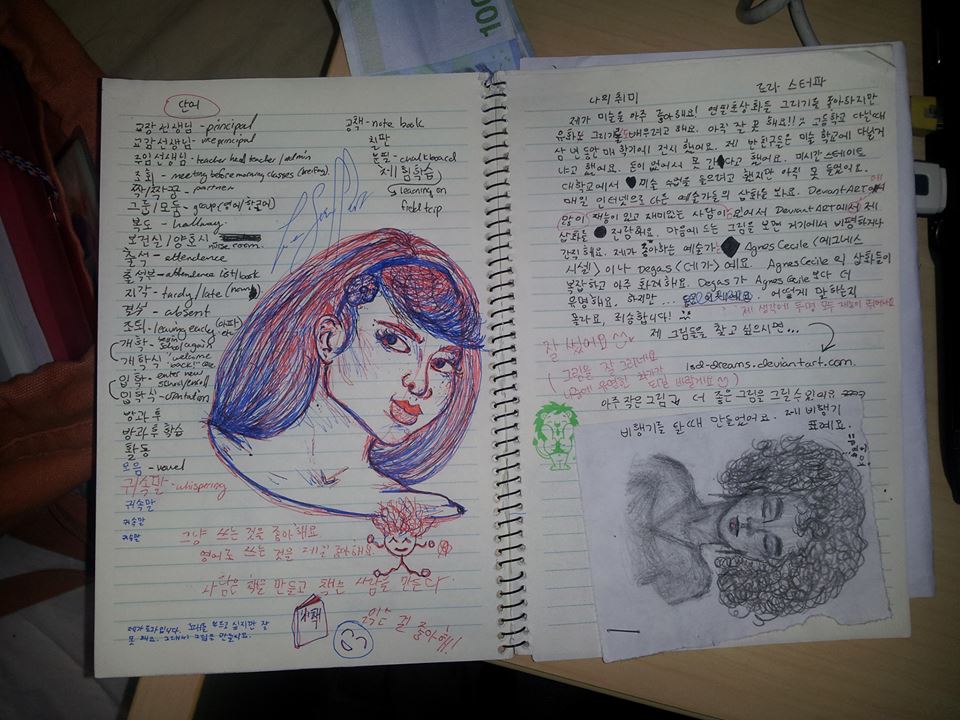 단어
교장 선생님 - principal
교감 선생님 - vice principal
주임 선생님 - teacher head teacher / admin
조회 - meeting before morning classes (briefing)
짝/짝꿍 - partner
그룹/모둠 - group
복도 - hallway
보건실/양호실 - nurse room
출석 - attendence
출석부 - attendence list/book
지각 - tardy/late (noun)
결석 - absent
조퇴 - leaving early etc.
개학 - begin school again
개학식 - "welcome back"
입학 - enter new school/enroll
입학식 - orientation
방과 후
방과 후 학습
활동
모음 - vowel
귀속말 - whispering
귀속말
귀속말
귀속말
공책 - note book
칠판
분필 - chalkboard
체험학습
learning on
field trip
그냥 쓰는 것을 좋아해요
영어로 쓰는 것을 제일 좋아해요.
사람은 책을 만들고 책은 사람을 만든다.
책
제가
싶지만 잘
못 해요. 그래서 그림은
나의 취미
제가 미술을 아주 좋아해요! 연필 초상화를 그리기를 좋아하지만
유화는 그리기를 배우려고 해요. 아직 잘 못 해요!! 고등학교 다닐때
삼 년 동안 매 학기에 전시 했어요. 제 반 친구들은 미술 학교에 다닐거
냐고 했어요. 돈이 없어서 못 간다고 했어요. 미시간 스테이트
대학교에서 미술 수업을 들으려고 했지만 아직 못 들었어요.
매일 인터넷으로 다른 예술가들의 삽화를 봐요. DeviantART에서
많이 재능이 있고 재미있는 사람이 있어서 DeviantART에서 제
삽화를 전람해요. 마음에 드는 그림을 보면 거기에서 비평하거나
칭찬해요. 제가 좋아하는 예술가 Agnes Cecile (에그네스
시셀)이나 Degas (데가)예요. Agnes Cecile의 삽화들이
복잡하고 아주 화려해요. Degas가 Agnes Cecile보다 더
유명해요. 하지만... 어떻게 말하는지
몰라요, 죄송합니다!
제 생각에 두명 모두 재능이 뛰어나요
잘 썼어요
제 그림들을 찾고 싶으시면...
(그림을 잘 그리네요
유명한 화가가 되길 바랄게요)
lsd-dreams.deviantart.com
아주 작은 그림 더 좋은 그림을 그릴 수 있어요
비행기를 탈때 만들었어요. 제 비행기
표예요.